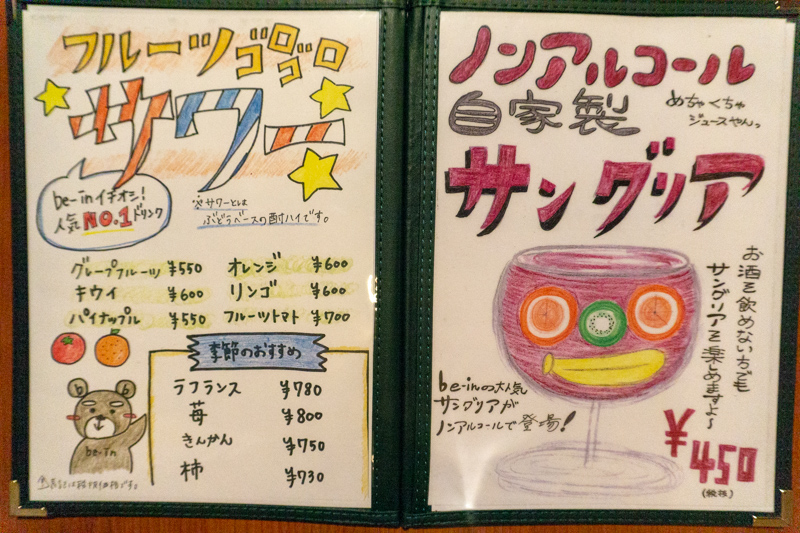 フルーツゴロゴロ
サワー
be-inイチオシ!
人気NO.1ドリンク
※サワーとは
ぶどうベースの酎ハイです。
グレープフルーツ ¥550
オレンジ ¥600
キウイ ¥600
リンゴ ¥600
パイナップル ¥550
フルーツトマト ¥700
季節のおすすめ
ラフランス ¥780
苺 ¥800
きんかん ¥750
柿 ¥730
b b
be-in
ノンアルコール
自家製
めちゃくちゃ
ジュースやんっ
サングリア
お酒を飲めない方でも
サングリアを楽しめますよ〜
be-inの大人気
サングリアが
ノンアルコールで登場!
¥450
(税抜)